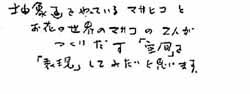 抽象画をやっている マサヒコ と
お花の世界の マサコ の 2人が
つくりだす 「空間」を
「表現」してみたいと思います。